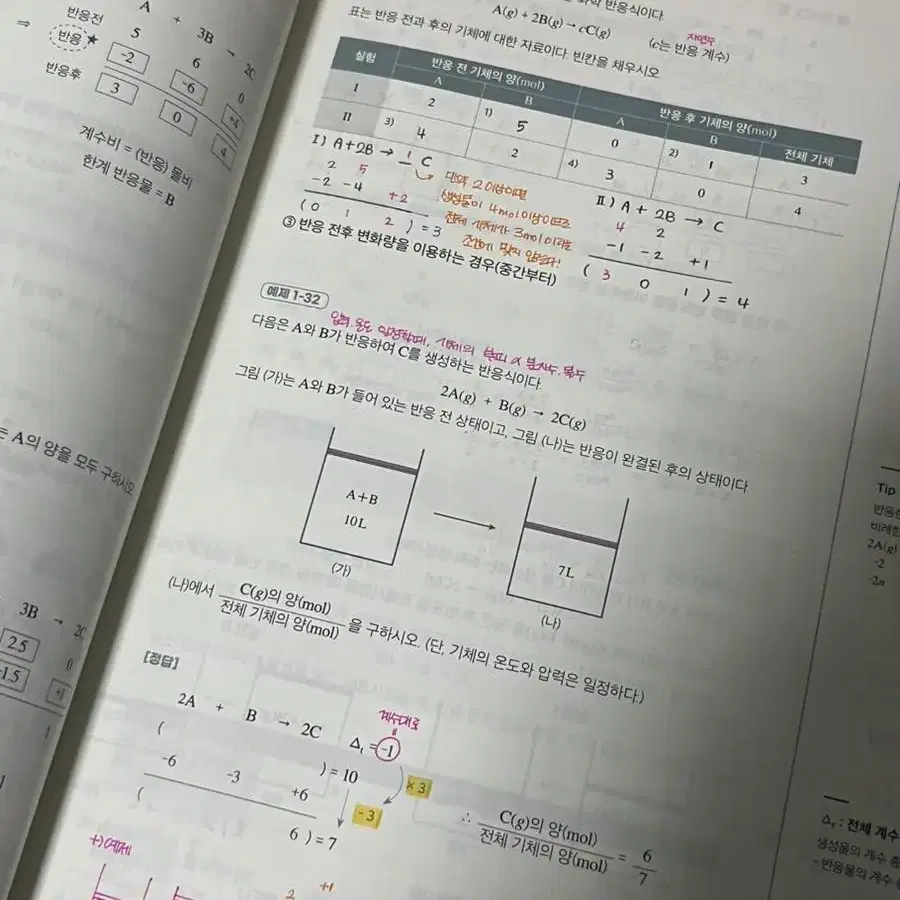 A + 3B → 2C
반응전 5 6 0
⇒ 반응 ★ -2 -6 +4
반응후 3 0 4
계수비 = (반응) 몰비
한계 반응물 = B
A의 양을 모두 구하시오
3B → 2C
2.5 0
-1.5 +1
1
반응식이다.
A(g) + 2B(g) → cC(g) (c는 반응 계수)
자연수
표는 반응 전과 후의 기체에 대한 자료이다. 빈칸을 채우시오
실험 반응 전 기체의 양(mol) 반응 후 기체의 양(mol)
A B A B 전체 기체
I 2 1) 5 0 2) 1 3
II 3) 4 2 4) 3 0 4
I) A+2B → 1 C
2 5
-2 -4 +2
( 0 1 2 ) = 3
만약 2 이상이면
생성물이 4mol 이상이므로
전체 기체가 3mol이라는
조건에 맞지 않는다!
II) A + 2B → C
4 2
-1 -2 +1
( 3 0 1 ) = 4
③ 반응 전후 변화량을 이용하는 경우(중간부터)
예제 1-32
압력·온도 일정할때, 기체의 부피 ∝ 분자수·몰수
다음은 A와 B가 반응하여 C를 생성하는 반응식이다.
2A(g) + B(g) → 2C(g)
그림 (가)는 A와 B가 들어 있는 반응 전 상태이고, 그림 (나)는 반응이 완결된 후의 상태이다.
A+B
10L
(가)
7L
(나)
(나)에서 C(g)의 양(mol) / 전체 기체의 양(mol) 을 구하시오. (단, 기체의 온도와 압력은 일정하다.)
[정답]
2A + B → 2C
계수대로
Δt = -1
( ) = 10
×3
-6 -3 +6
-3
( 6 ) = 7
∴ C(g)의 양(mol) / 전체 기체의 양(mol) = 6/7
+)예제
2 +1
Tip
비례한
2A(g)
-2
-2n
Δt : 전체 계수
생성물의 계수
- 반응물의 계수